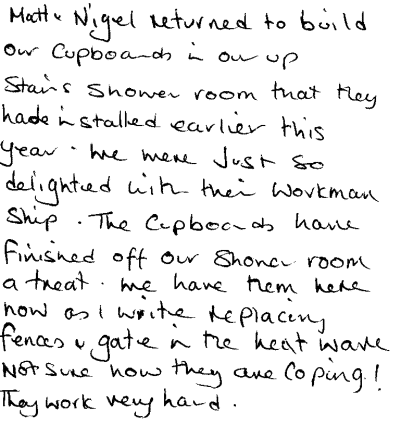 Matt & Nigel returned to build
our Cupboards in our up
Stairs Shower room that they
hade installed earlier this
year. We were Just so
delighted with their workman
Ship. The Cupboards have
finished off our Shower room
a treat. We have them here
now as I write replacing
fences & gate in the heat wave
Not Sure how they are Coping!
They work very hard.